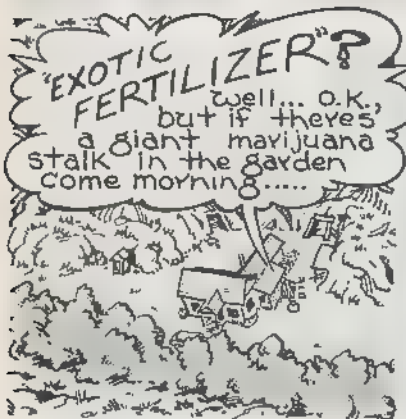 "EXOTIC
FERTILIZER"?
well... O.K.,
but if theres
a giant marijuana
stalk in the garden
come morning.....